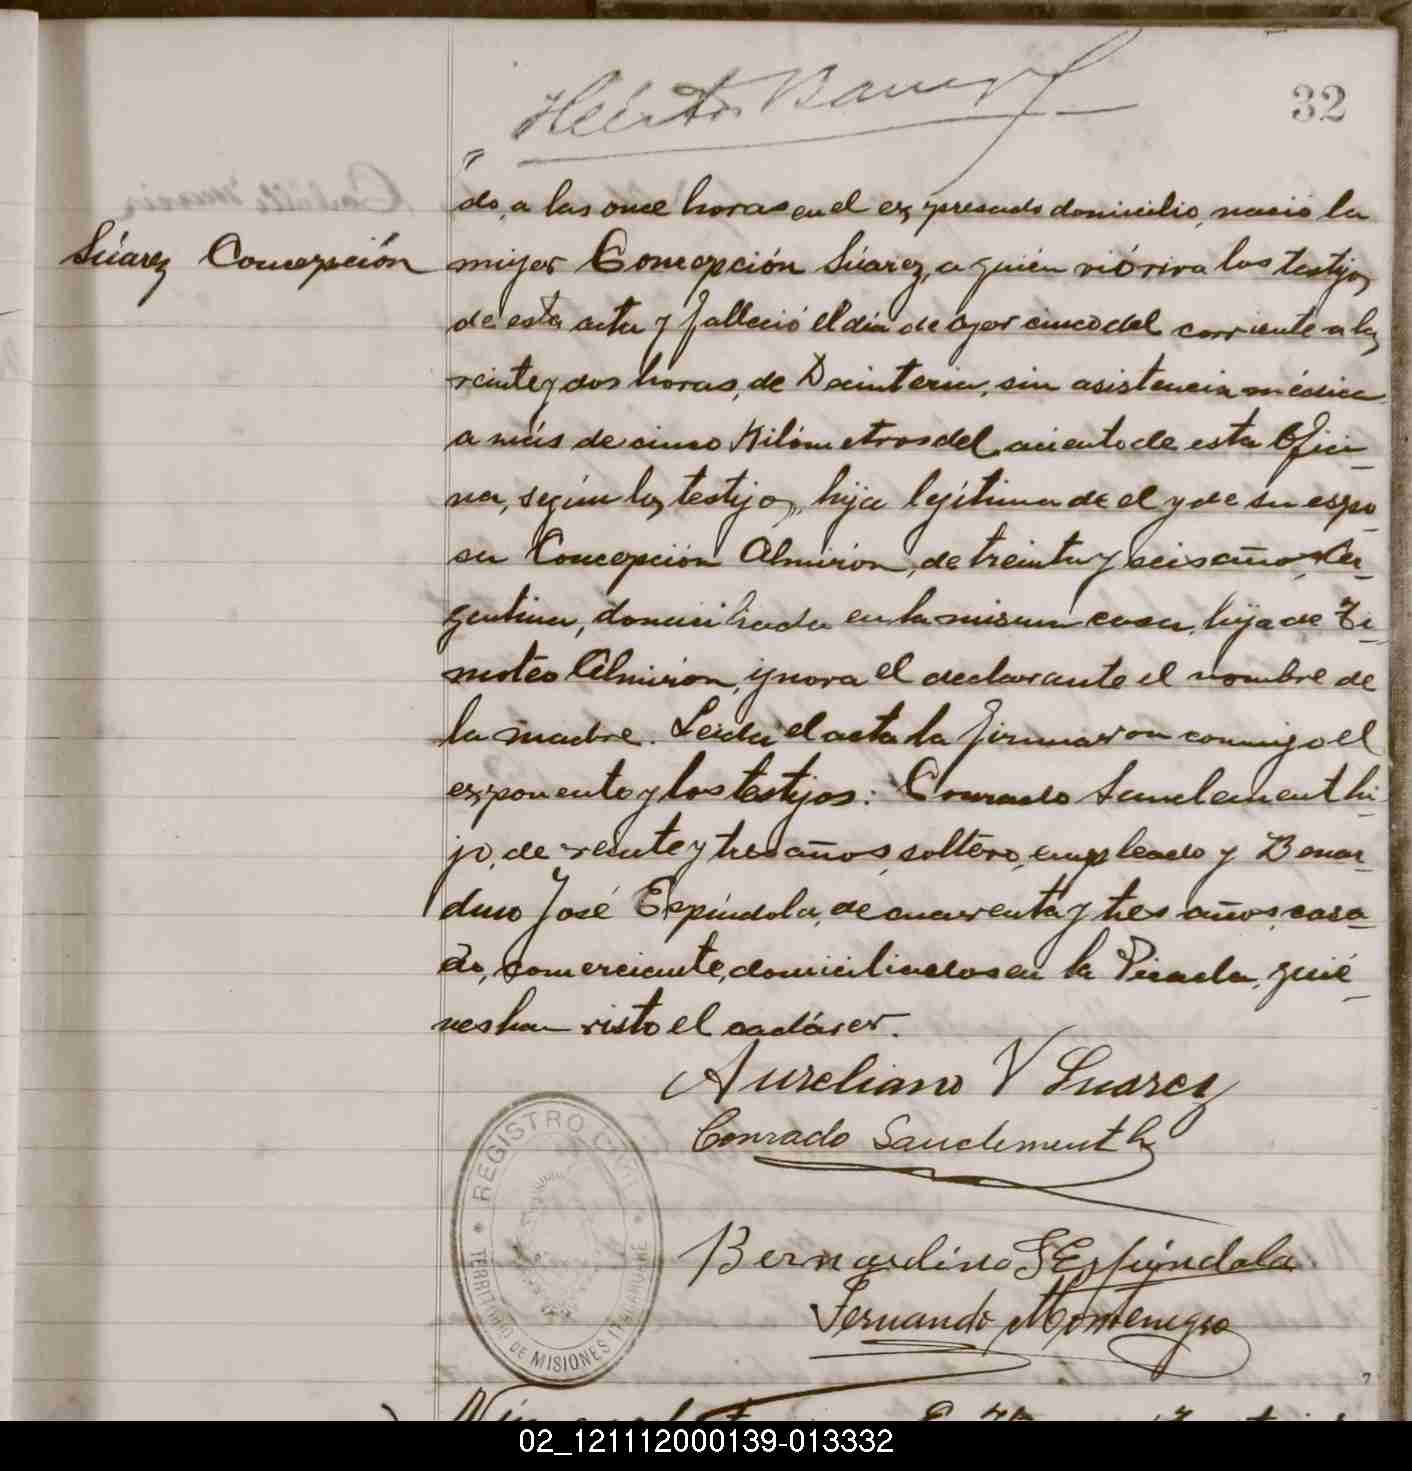 32
Héctor
do, a las once horas en el expresado domicilio, nació la
Súarez Concepción
mujer Concepción Súarez, a quién vió viva los testigos
de esta acta y falleció el día de ayer cinco del corriente a las
veinte y dos horas, de Decinteria, sin asistencia médica
a más de cinco Kilómetros del aciento de esta Ofici-
na, según los testigos, hija legítima de el y de su espo-
sa Concepción Almirón, de treinta y seis años, Ar-
gentina, domiciliada en la misma casa, hija de Ti-
moteo Almirón, ignora el declarante el nombre de
la madre. Leida el acta la firmaron conmigo el
exponente y los testigos: Conrado Sanclement hi-
jo, de veinte y tres años, soltero, empleado y Bernar-
dino José Espíndola, de cuarenta y tres años, casa-
do, comerciante, domiciliados en la Picada, quié-
nes han visto el cadáver.
Aureliano V Suarez
Conrado Sanclement h
Bernardino J Espíndola
Fernando Montenegro
REGISTRO CIVIL
TERRITORIO DE MISIONES
02_121112000139-013332